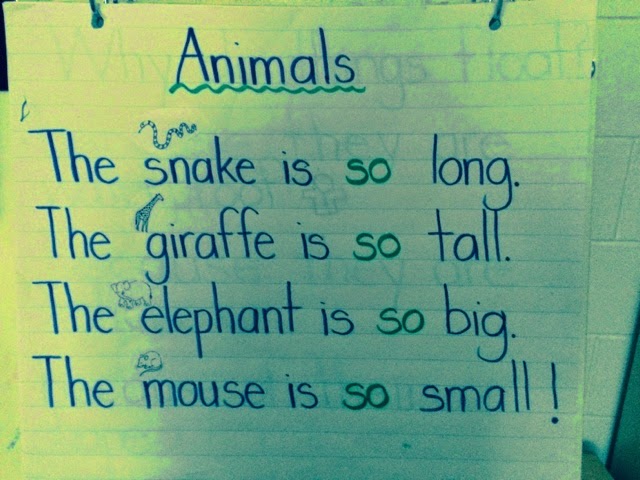 Animals
The snake is so long.
The giraffe is so tall.
The elephant is so big.
The mouse is so small!